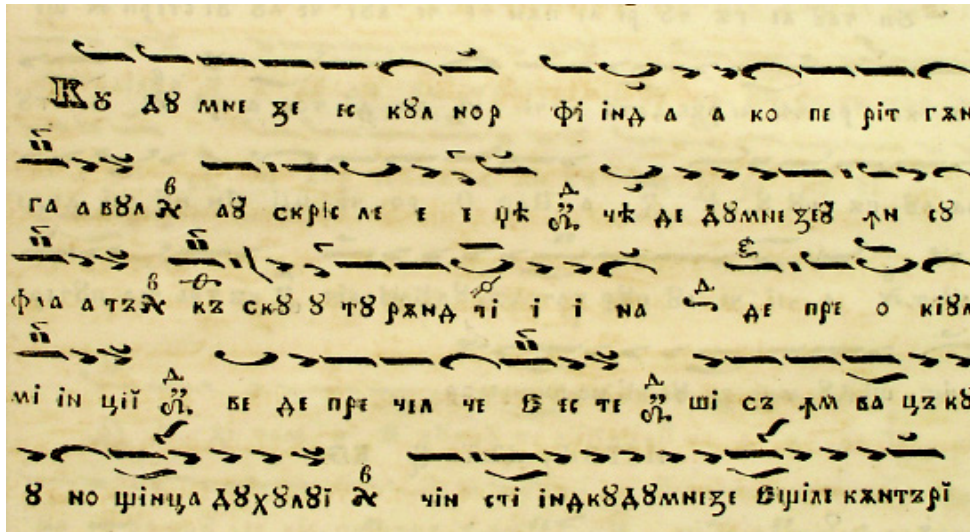 Кꙋ дꙋ мне ꙁе ес кꙋл нор фі інд а а ко пе ріт гѫн
га а вꙋл аꙋ скріс ле е е цѣ чѣ де дꙋмнеꙁеꙋ ꙟн сꙋ
фла а тъ къ скꙋ ꙋ тꙋ рѫнд чі і і і на де пре о кіꙋл
мі ін ції ве де пре чел че Є ес те ші съ ꙟм ва цъ кꙋ
ꙋ но щінца дꙋхꙋлꙋї чін сті індкꙋдꙋмнеꙁе Єщіле кѫнтърї